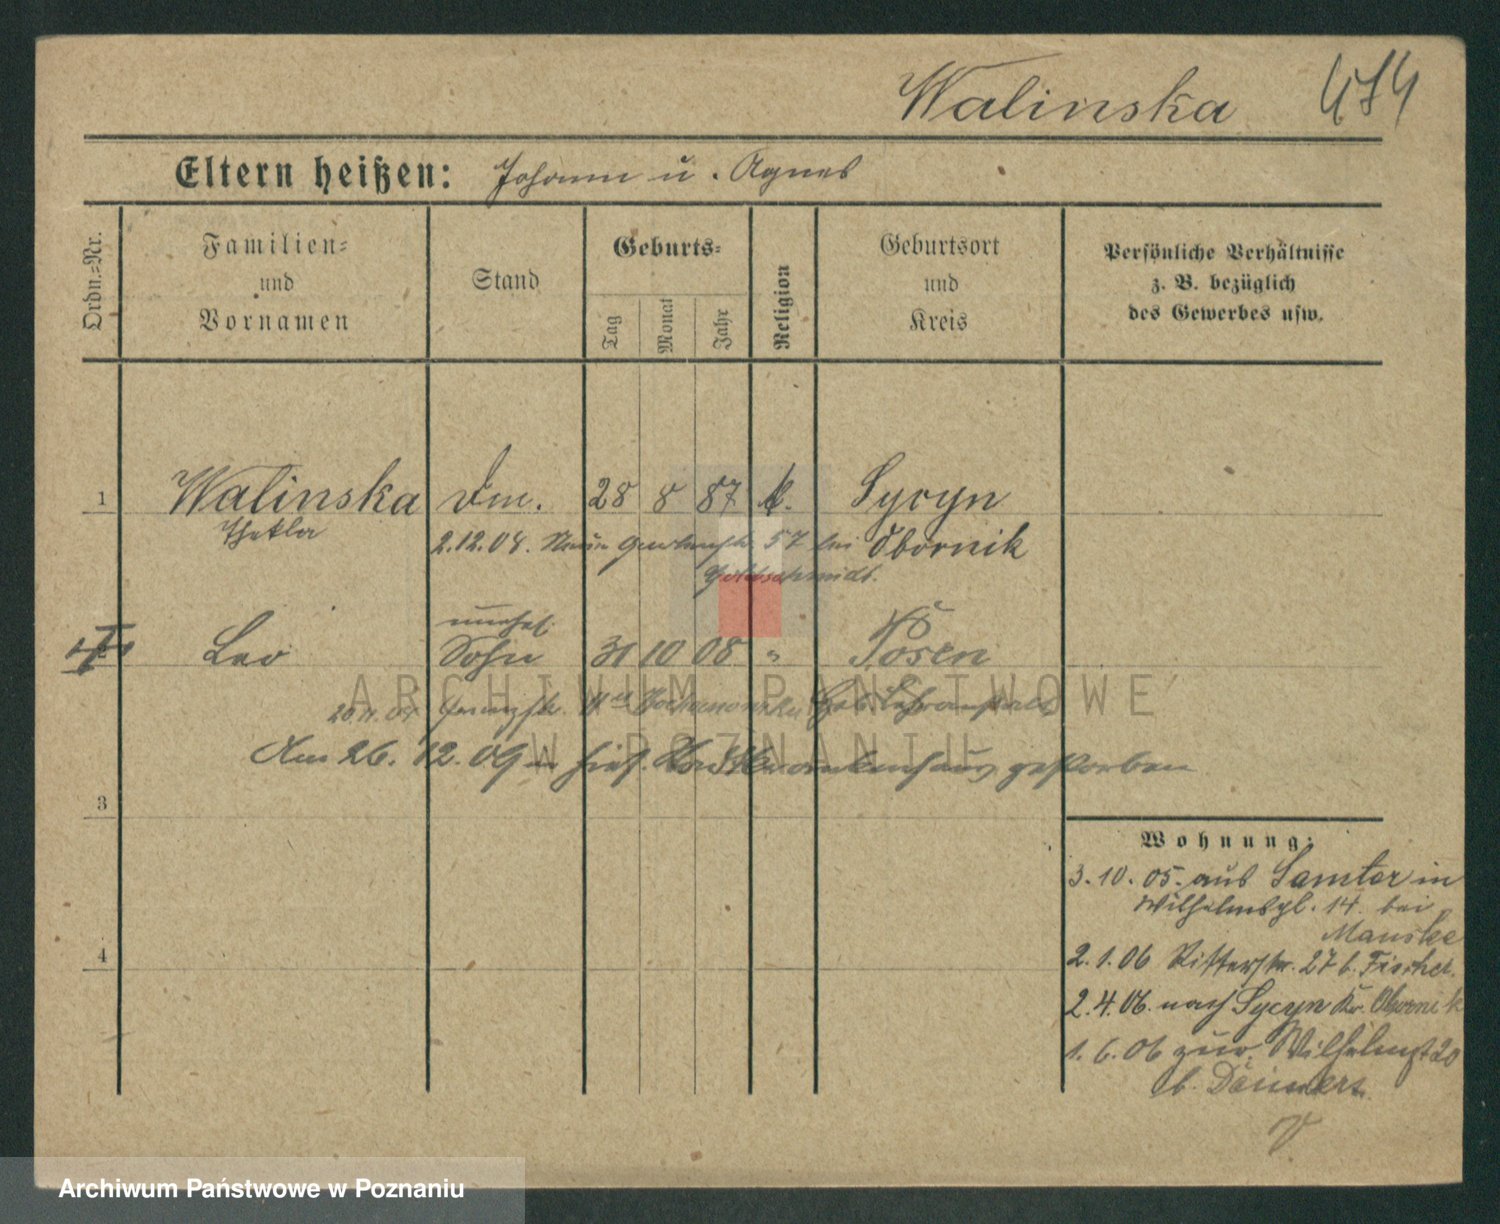 Walinska 484
Eltern heißen: Johann u. Agnes
Ordn.=Nr.
Familien=
und
Vornamen
Stand
Geburts=
Tag
Monat
Jahr
Religion
Geburtsort
und
Kreis
Persönliche Verhältnisse
z. B. bezüglich
des Gewerbes usw.
1 Walinska Dm. 28 8 87 k. Sycyn
Thekla
2.12.08. Neue Gartenstr. 57 bei Obornik
Goldschmidt.
unehel.
Leo Sohn 31 10 08 " Posen
20.11.08
ARCHIWUM PAŃSTWOWE
W POZNANIU
Am 26. 12. 09 im hies. gestorben
3
Wohnung:
3.10.05. aus Samter in
Wilhelmspl. 14. bei
Manske
4
2.1.06 Ritterstr. 27 b. Fischer.
2.4.06. nach Sycyn Kr. Obornik
1.6.06 zur. Wilhelmst 20
b.
Archiwum Państwowe w Poznaniu